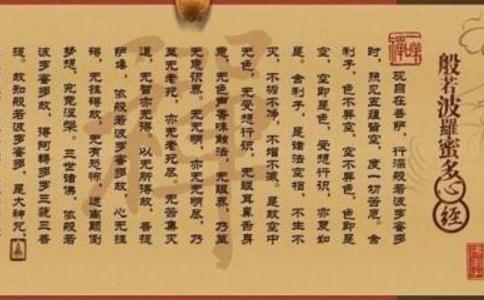 般若波羅蜜多心經
观自在菩萨，行深般若波罗蜜多
时，照见五蕴皆空，度一切苦厄。舍
利子，色不异空，空不异色。色即是
空，空即是色，受想行识，亦复如
是。舍利子，是诸法空相，不生不
灭，不垢不净，不增不减。是故空中
无色，无受想行识，无眼耳鼻舌身
意，无色声香味触法，无眼界，乃至
无意识界。无无明，亦无无明尽，乃
至无老死，亦无老死尽，无苦集灭
道，无智亦无得，以无所得故，菩提
萨埵，依般若波罗蜜多故，心无挂
碍，无挂碍故，无有恐怖，远离颠倒
梦想，究竟涅槃。三世诸佛，依般若
波罗蜜多故，得阿耨多罗三藐三菩
提。故知般若波罗蜜多，是大神咒，
禪